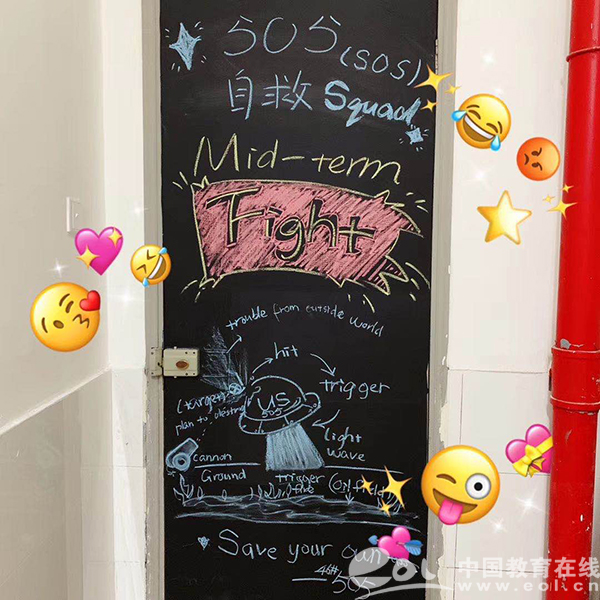 505 (SOS)
自救 Squad
Mid-term
Fight
trouble from outside world
hit
trigger
(target)
plan to
US
505
light
wave
cannon
Ground
trigger
fire
(oil field)
Save your own
46# 505
中国教育在线
www.eol.cn